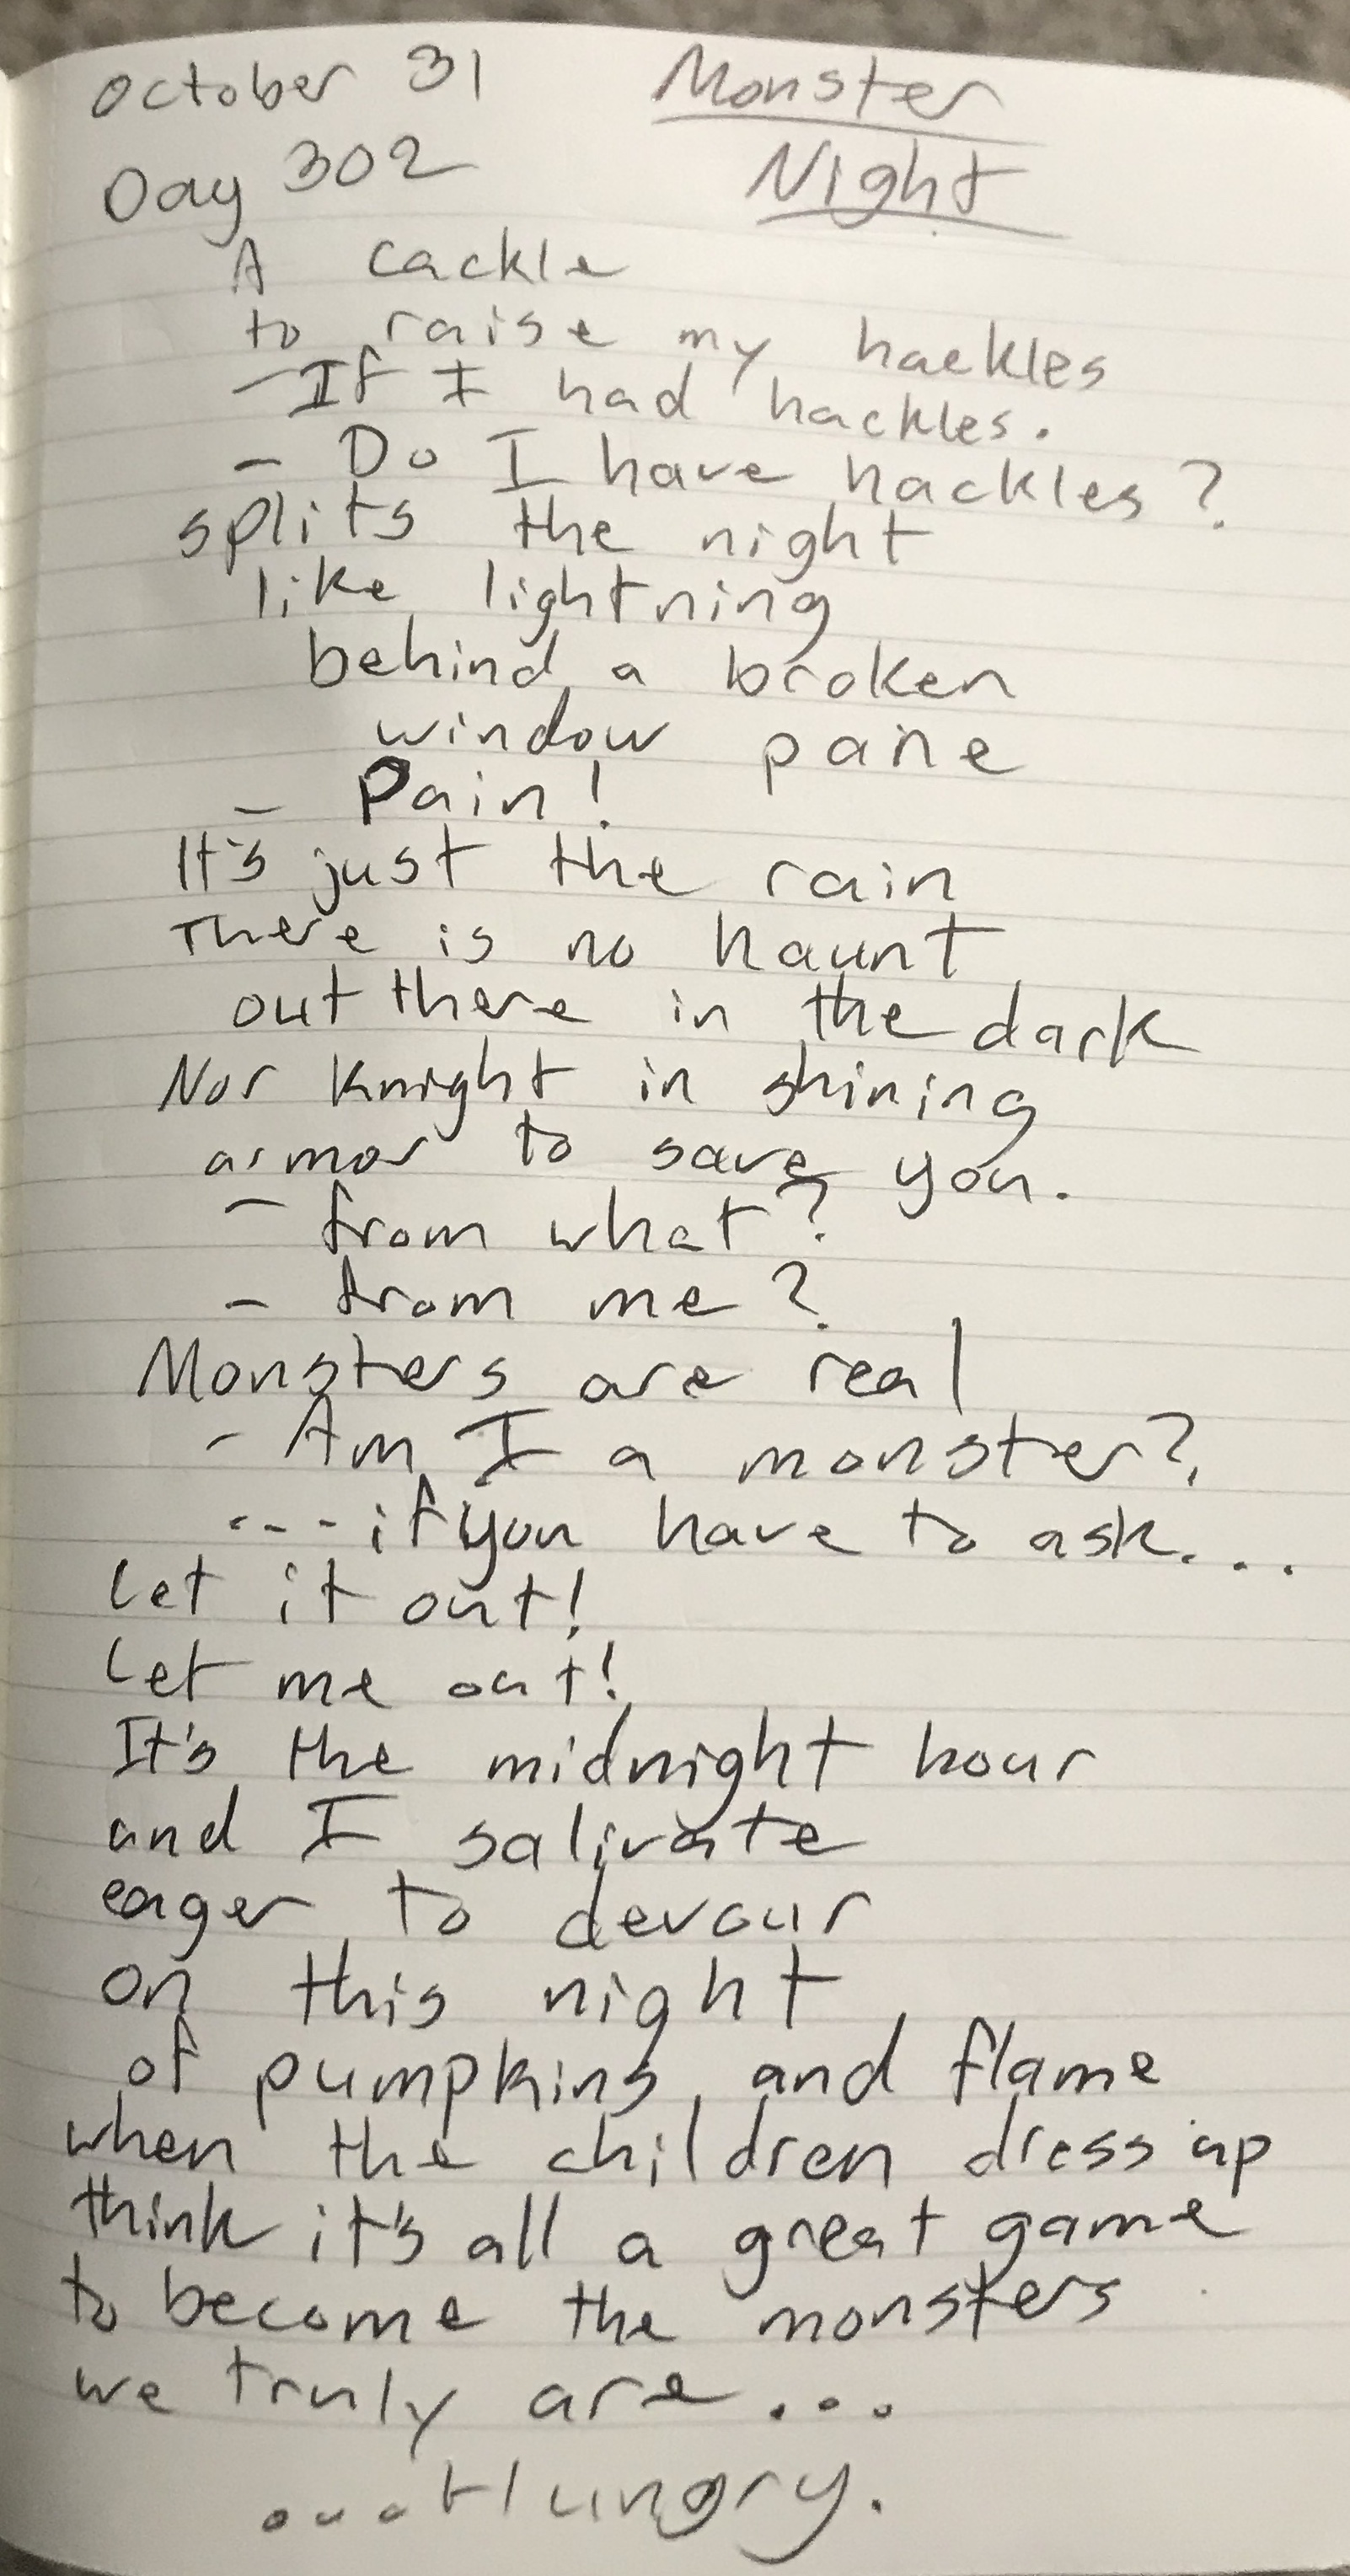 October 31 Monster
Day 302 Night
A cackle
to raise my hackles
- If I had hackles.
- Do I have hackles?
splits the night
like lightning
behind a broken
window pane
- Pain!
It's just the rain
There is no haunt
out there in the dark
Nor Knight in shining
armor to save you.
- from what?
- from me?
Monsters are real
- Am I a monster?
...if you have to ask...
Let it out!
Let me out!
It's the midnight hour
and I salivate
eager to devour
on this night
of pumpkins and flame
when the children dress up
think it's all a great game
to become the monsters
we truly are...
...Hungry.